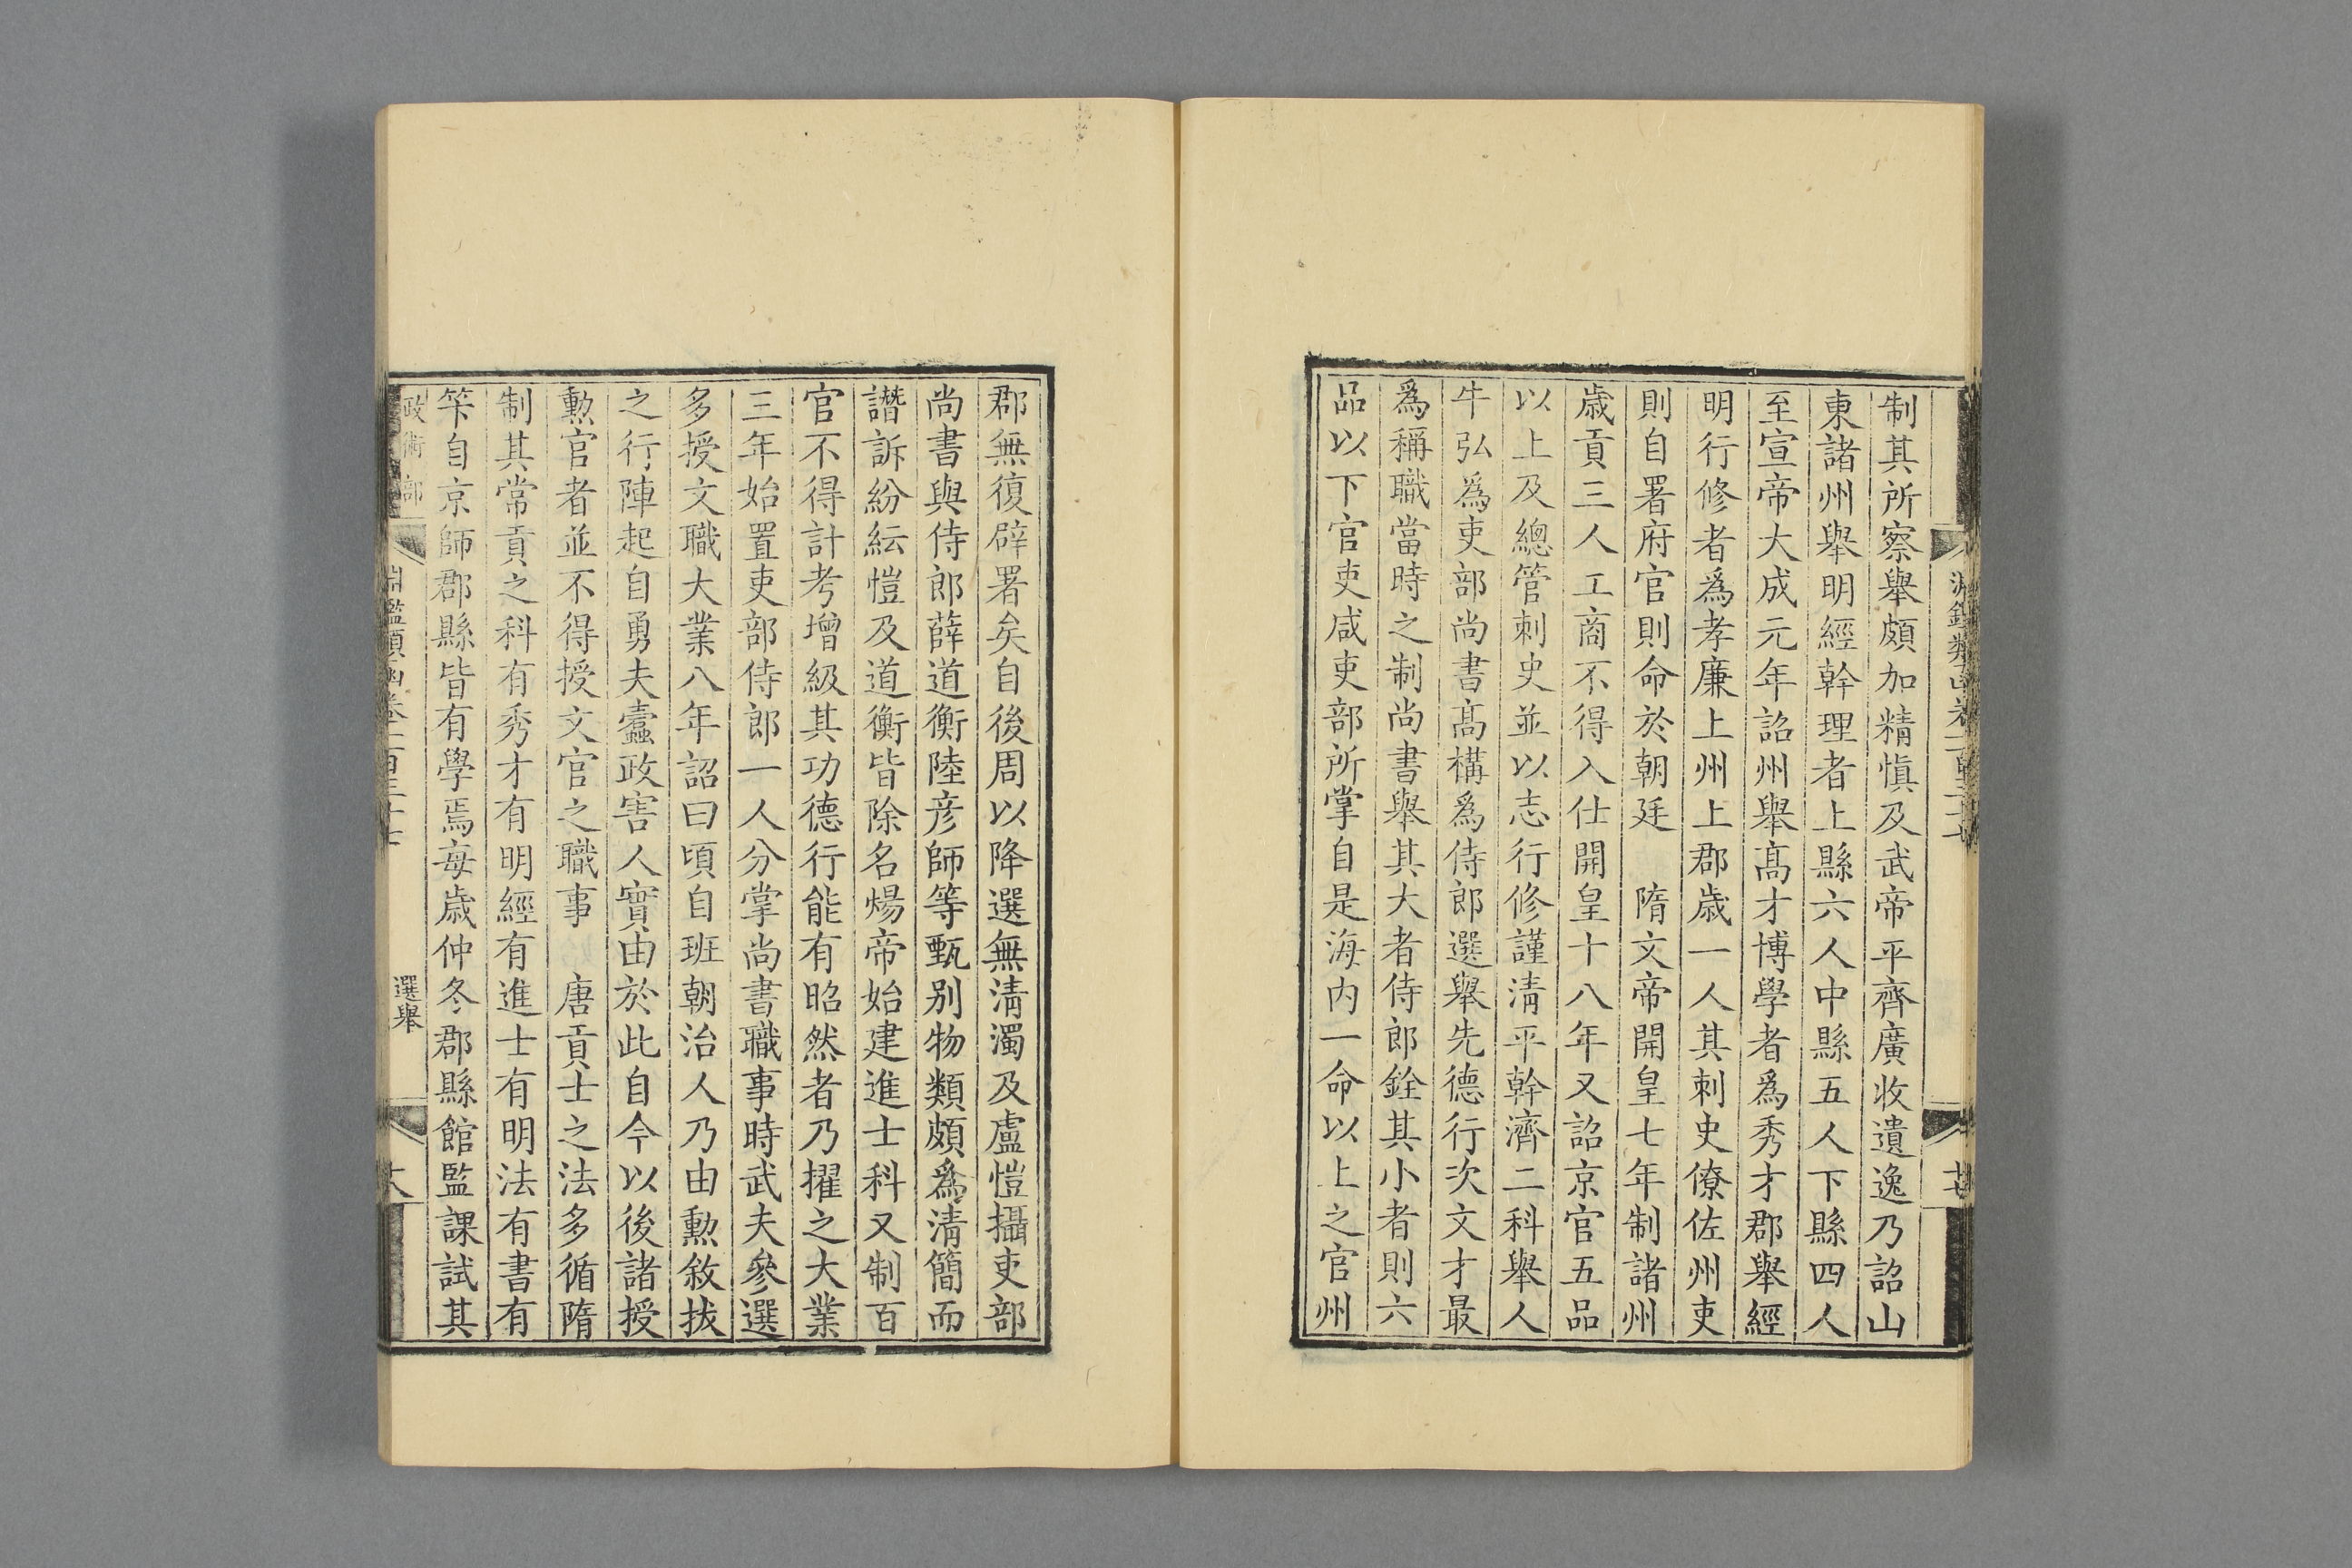 制其所察舉頗加精愼及武帝平齊廣收遺逸乃詔山
東諸州舉明經幹理者上縣六人中縣五人下縣四人
至宣帝大成元年詔州舉高才博學者爲秀才郡舉經
明行修者爲孝廉上州上郡歲一人其刺史僚佐州吏
則自署府官則命於朝廷　隋文帝開皇七年制諸州
歲貢三人工商不得入仕開皇十八年又詔京官五品
以上及總管刺史並以志行修謹淸平幹濟二科舉人
牛弘爲吏部尚書高構爲侍郎選舉先德行次文才最
爲稱職當時之制尚書舉其大者侍郎銓其小者則六
品以下官吏咸吏部所掌自是海內一命以上之官州
郡無復辟署矣自後周以降選無淸濁及盧愷攝吏部
尚書與侍郎薛道衡陸彥師等甄別物類頗爲淸簡而
譖訴紛紜愷及道衡皆除名煬帝始建進士科又制百
官不得計考增級其功德行能有昭然者乃擢之大業
三年始置吏部侍郎一人分掌尚書職事時武夫參選
多授文職大業八年詔曰頃自班朝治人乃由勲敘拔
之行陣起自勇夫蠹政害人實由於此自今以後諸授
勲官者並不得授文官之職事　唐貢士之法多循隋
制其常貢之科有秀才有明經有進士有明法有書有
筭自京師郡縣皆有學焉每歲仲冬郡縣館監課試其
政術部　淵鑑類函卷一百三十七　選舉　十八